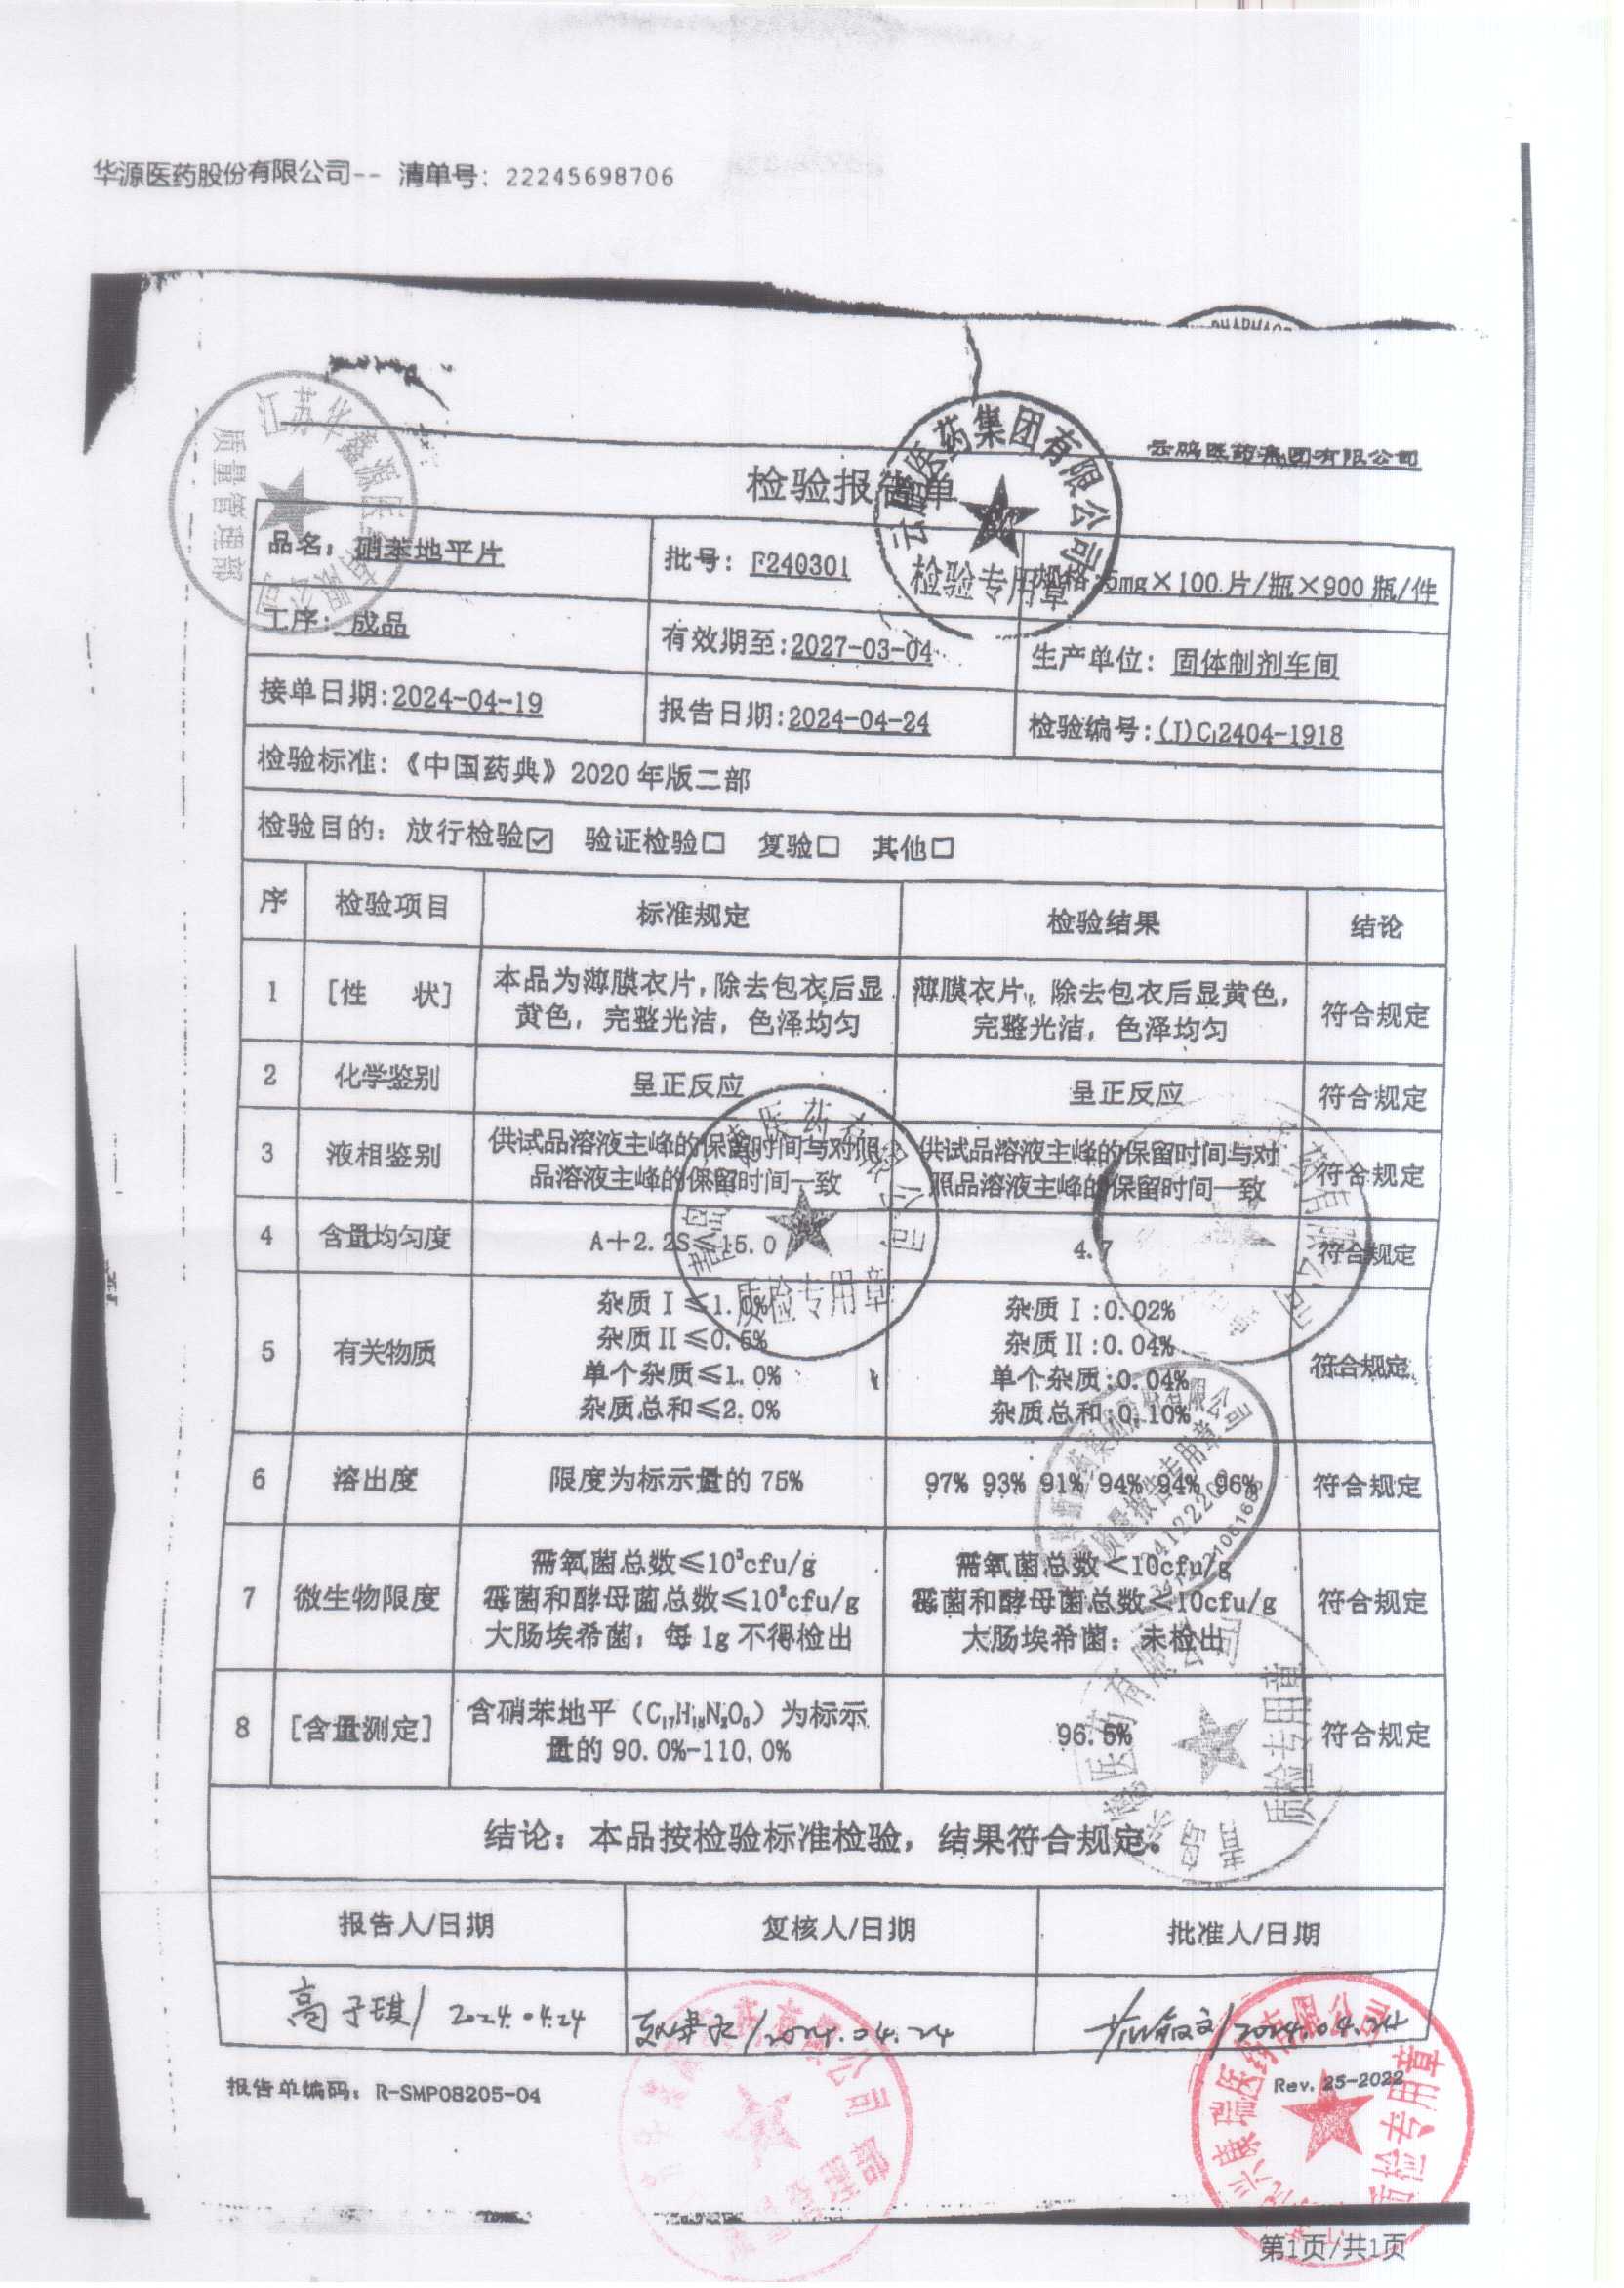 华源医药股份有限公司-- 清单号: 22245698706
云鹏医药集团有限公司
检验报告单
品名: 硝苯地平片 批号: F240301 规格:5mg×100片/瓶×900瓶/件
工序: 成品 有效期至:2027-03-04 生产单位: 固体制剂车间
接单日期:2024-04-19 报告日期:2024-04-24 检验编号:(J)C2404-1918
检验标准:《中国药典》2020年版二部
检验目的: 放行检验☑ 验证检验□ 复验□ 其他□
序 检验项目 标准规定 检验结果 结论
1 [性 状] 本品为薄膜衣片,除去包衣后显黄色, 完整光洁, 色泽均匀 薄膜衣片, 除去包衣后显黄色, 完整光洁, 色泽均匀 符合规定
2 化学鉴别 呈正反应 呈正反应 符合规定
3 液相鉴别 供试品溶液主峰的保留时间与对照品溶液主峰的保留时间一致 供试品溶液主峰的保留时间与对照品溶液主峰的保留时间一致 符合规定
4 含量均匀度 A+2.2S≤15.0 4.7 符合规定
5 有关物质
杂质Ⅰ≤1.0% 杂质Ⅰ:0.02%
杂质Ⅱ≤0.5% 杂质Ⅱ:0.04%
单个杂质≤1.0% 单个杂质:0.04%
杂质总和≤2.0% 杂质总和:0.10%
符合规定
6 溶出度 限度为标示量的75% 97% 93% 91% 94% 94% 96% 符合规定
7 微生物限度
需氧菌总数≤10³cfu/g 需氧菌总数<10cfu/g
霉菌和酵母菌总数≤10²cfu/g 霉菌和酵母菌总数<10cfu/g
大肠埃希菌: 每1g不得检出 大肠埃希菌: 未检出
符合规定
8 [含量测定] 含硝苯地平（C₁₇H₁₈N₂O₆）为标示量的90.0%-110.0% 96.5% 符合规定
结论: 本品按检验标准检验, 结果符合规定。
报告人/日期 复核人/日期 批准人/日期
高子琪/ 2024.04.24 /2024.04.24 /2024.04.24
报告单编码: R-SMP08205-04 Rev. 25-2022
云鹏医药集团有限公司
检验专用章
质量管理部
质检专用章
质检专用章
质检专用章
第1页/共1页